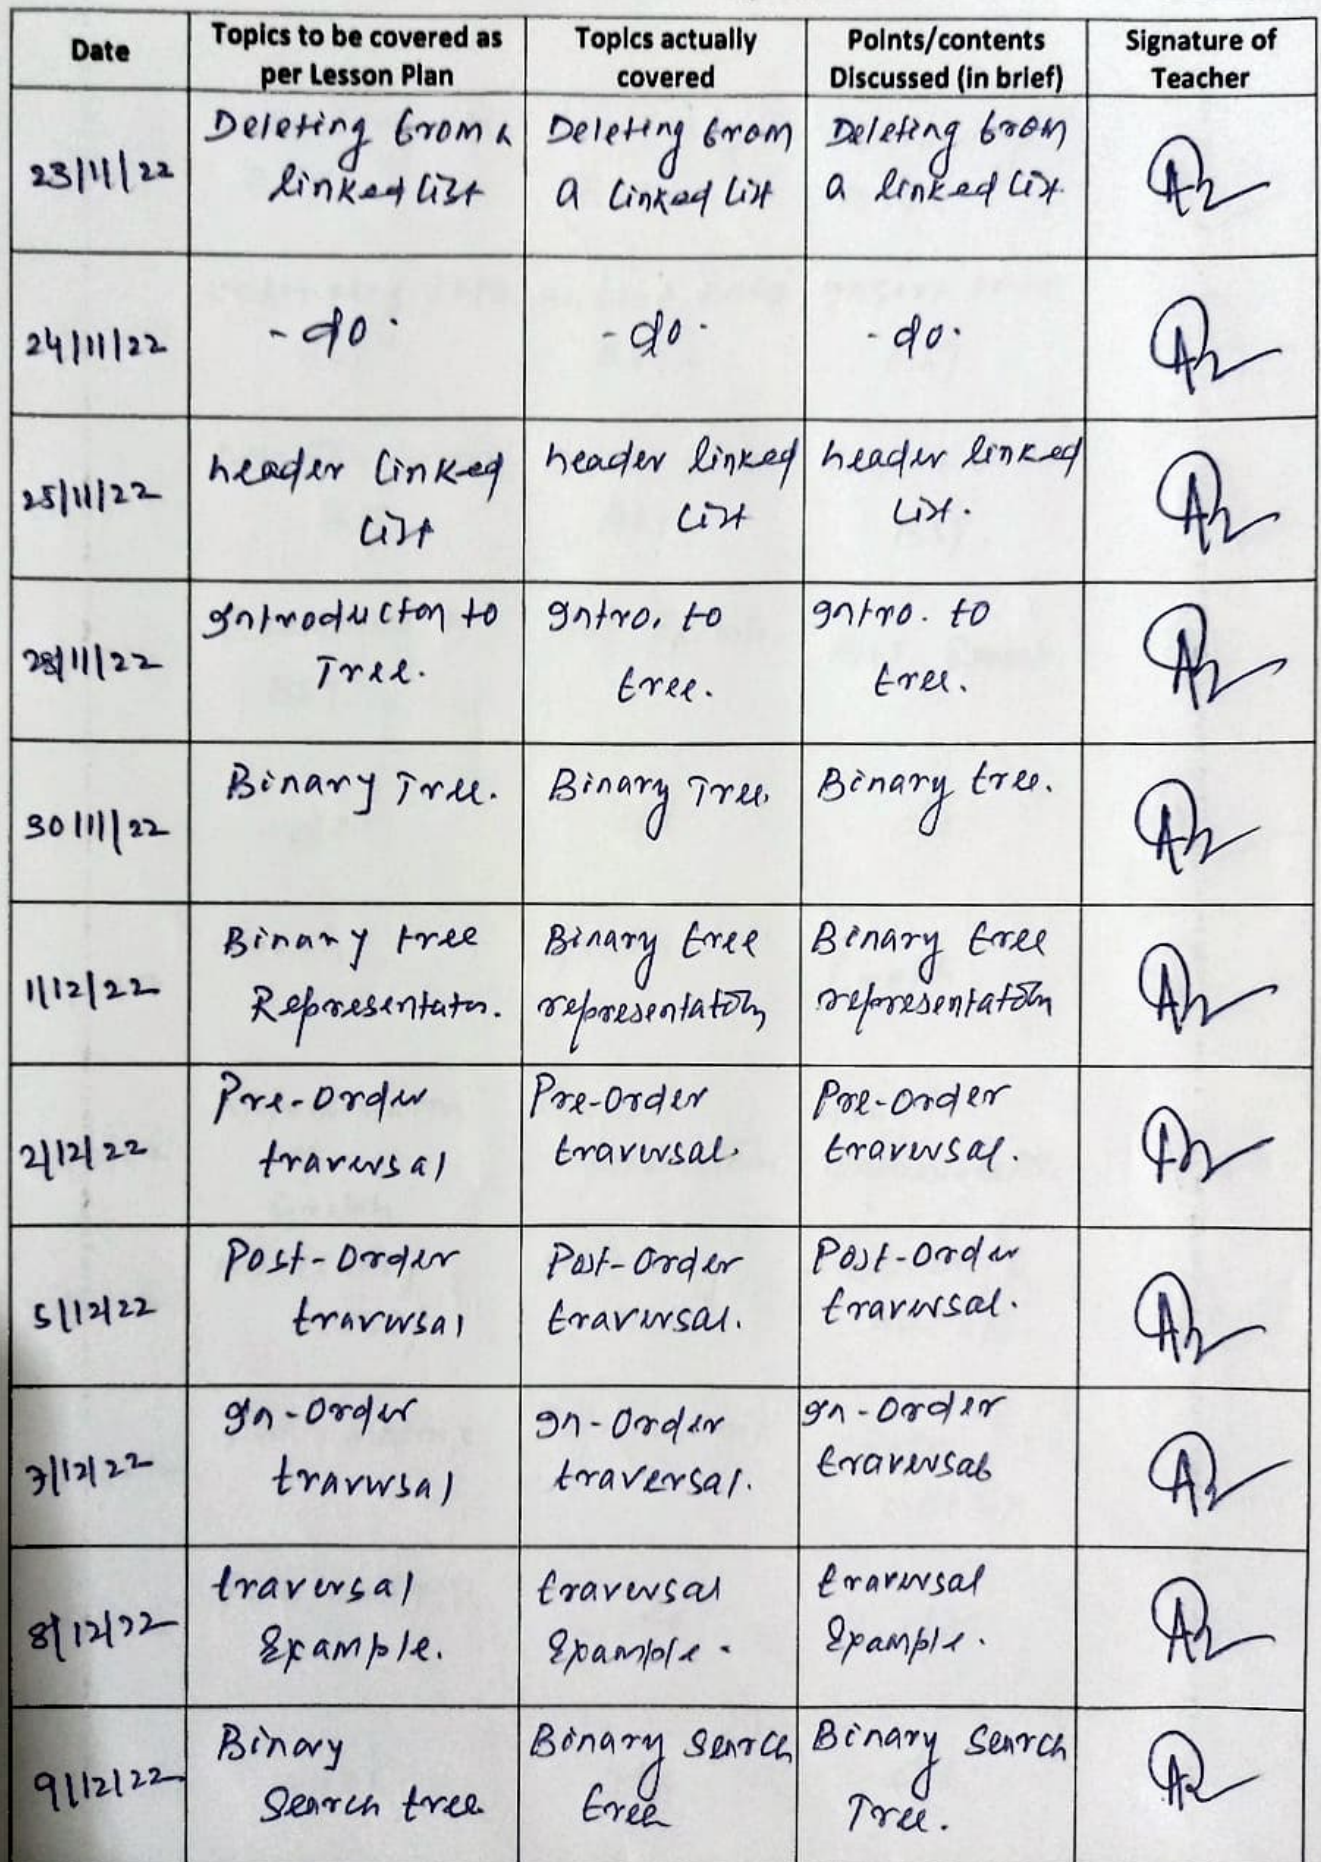 Date
Topics to be covered as
per Lesson Plan
Topics actually
covered
Points/contents
Discussed (in brief)
Signature of
Teacher
23/11/22
Deleting from a
linked list
Deleting from
a linked list
Deleting from
a linked list.
24/11/22
- do -
- do -
- do -
25/11/22
header linked
list
header linked
list
header linked
list.
28/11/22
Introduction to
Tree.
Intro. to
tree.
Intro. to
tree.
30/11/22
Binary Tree.
Binary Tree.
Binary tree.
1/12/22
Binary tree
Representation.
Binary tree
representation
Binary tree
representation
2/12/22
Pre-Order
traversal
Pre-Order
traversal.
Pre-Order
traversal.
5/12/22
Post-Order
traversal
Post-Order
traversal.
Post-Order
traversal.
7/12/22
In-Order
traversal
In-Order
traversal.
In-Order
traversal
8/12/22
traversal
Example.
traversal
Example.
traversal
Example.
9/12/22
Binary
Search tree.
Binary Search
tree
Binary Search
Tree.